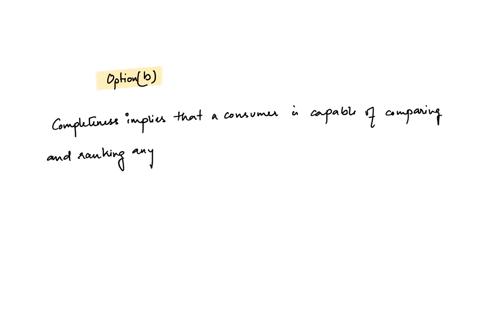 Option(b)
Completeness implies that a consumer is capable of comparing
and ranking any